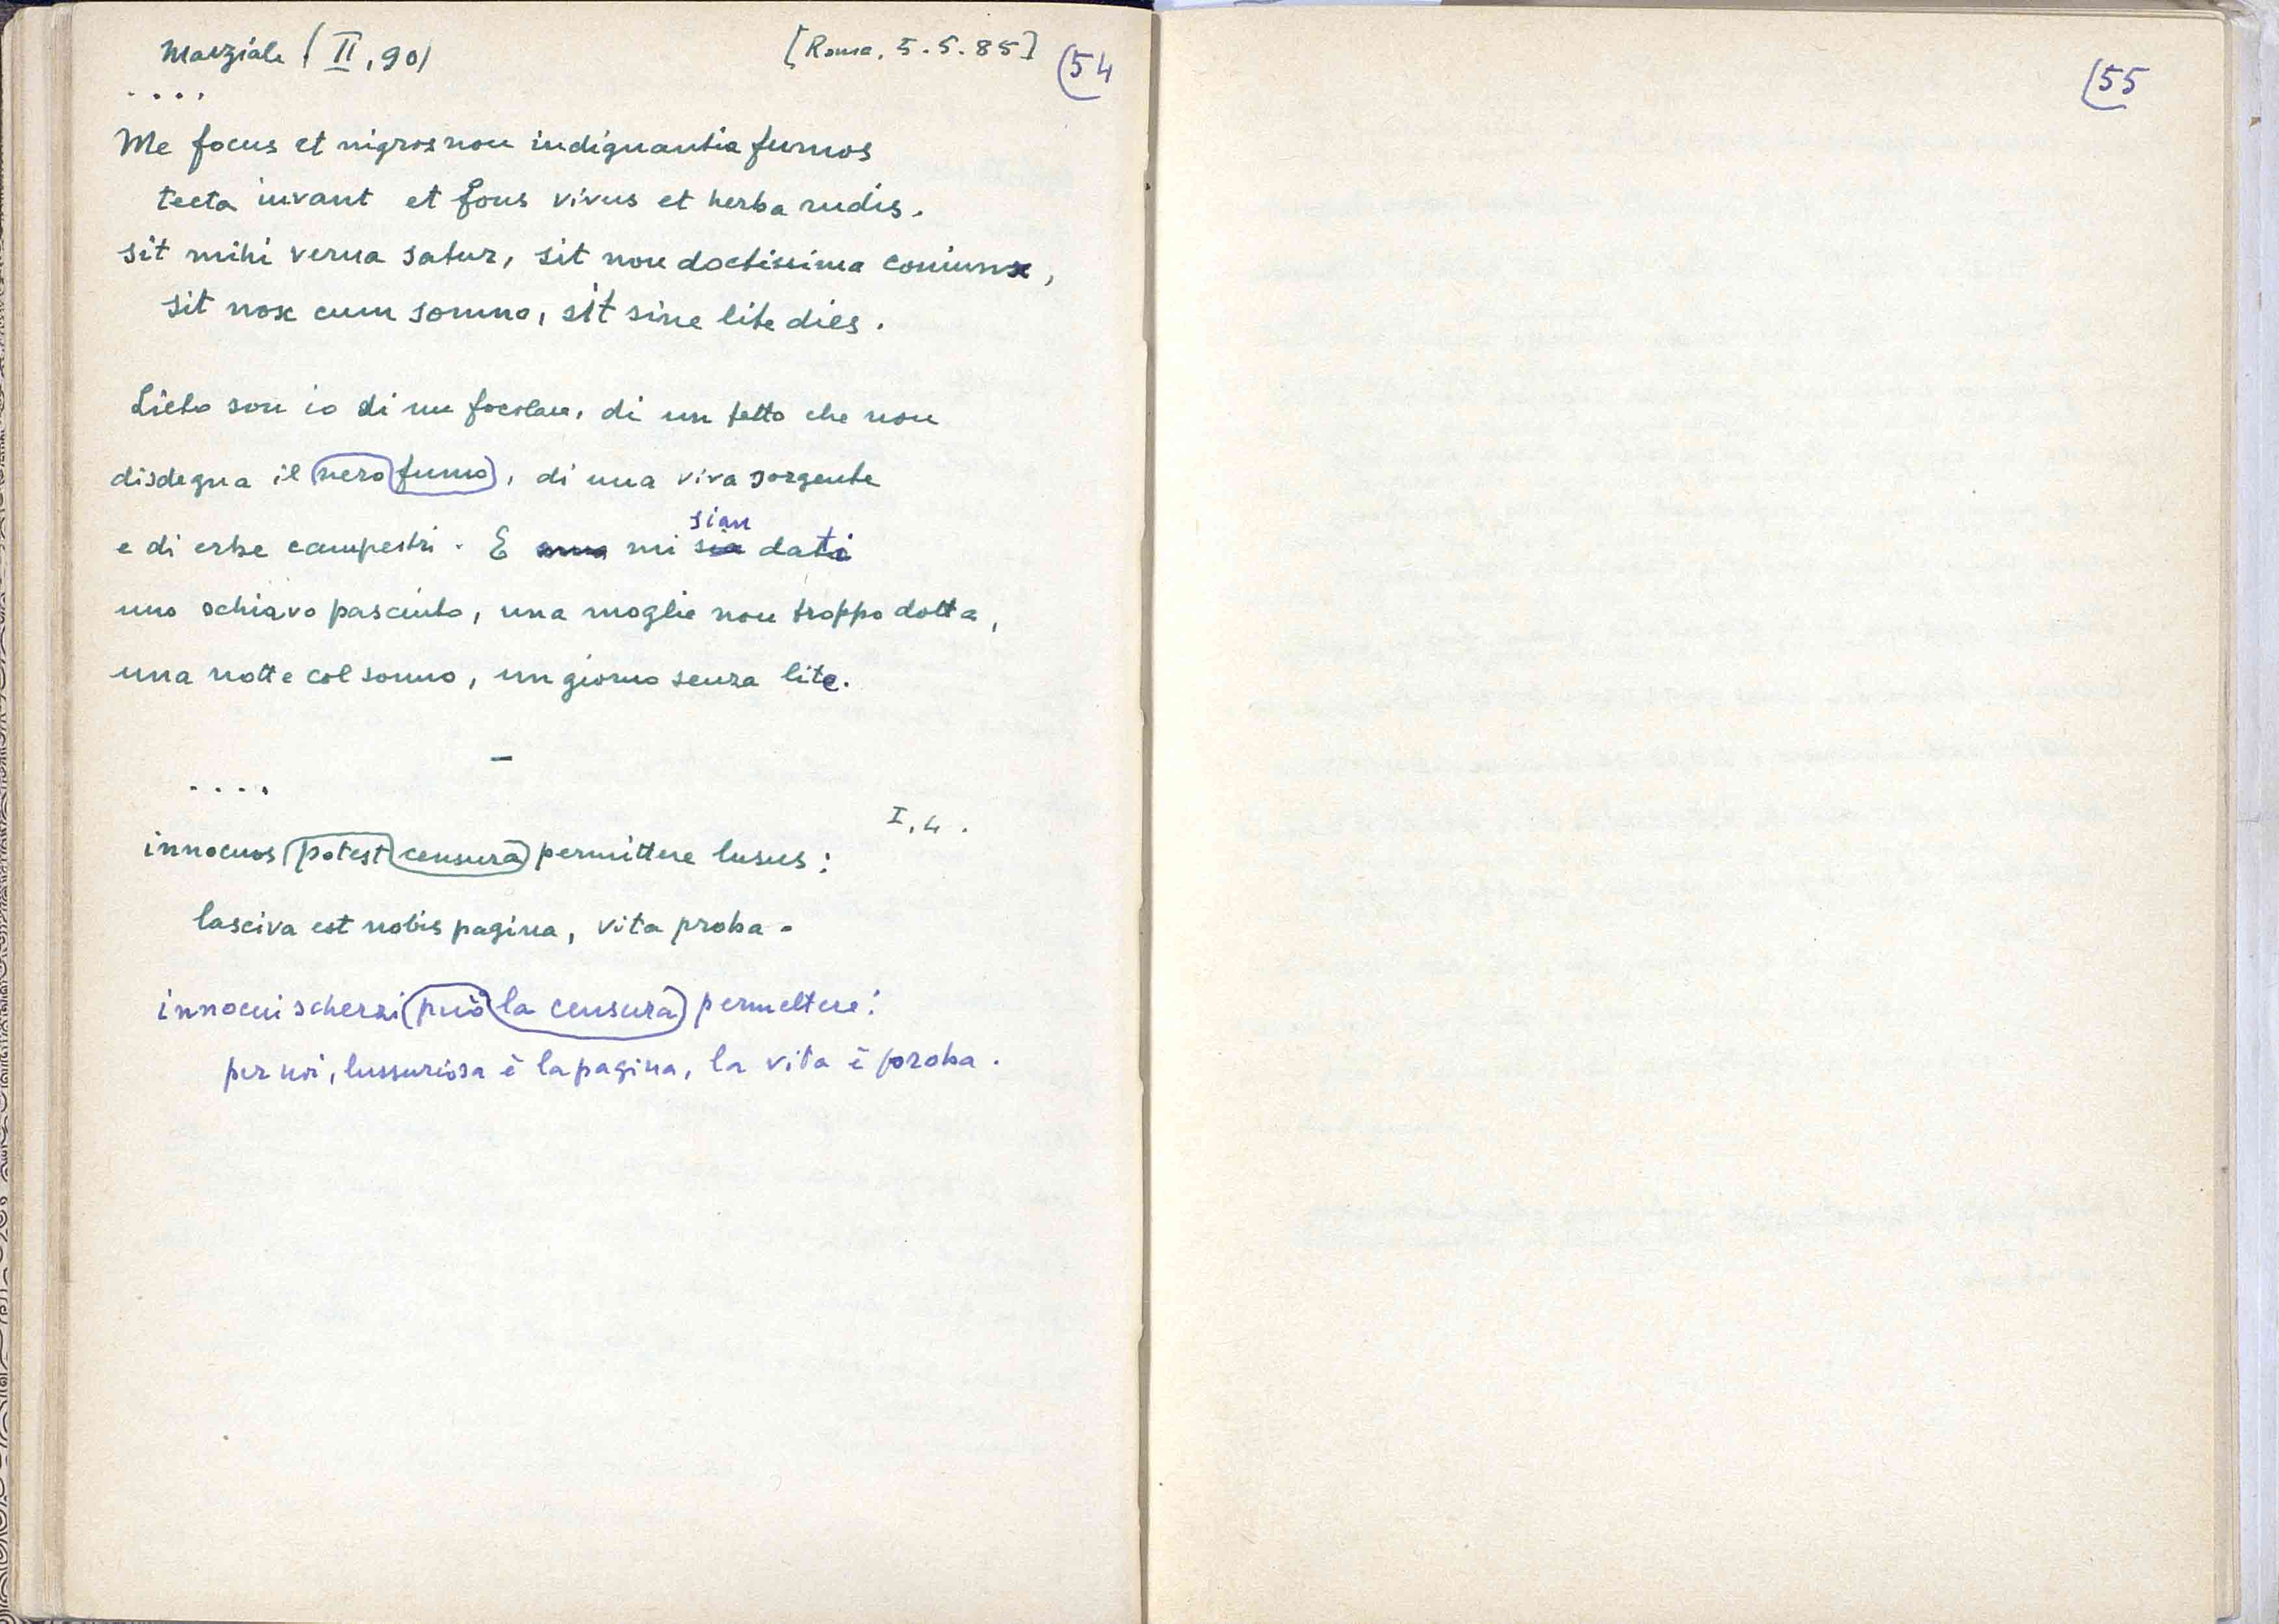 Marziale (II, 90)
[Roma, 5.5.85]
(54
....
Me focus et nigros non indignantia fumos
tecta iuvant et fons vivus et herba rudis.
sit mihi verna satur, sit non doctissima coniunx,
sit nox cum somno, sit sine lite dies.
Lieto son io di un focolare, di un tetto che non
disdegna il nero fumo, di una viva sorgente
sian
e di erbe campestri. E mi sia dati
uno schiavo pasciuto, una moglie non troppo dotta,
una notte col sonno, un giorno senza lite.
–
....
I, 4.
innocuos potest censura permittere lusus:
lasciva est nobis pagina, vita proba.
innocui scherzi può la censura permettere:
per noi, lussuriosa è la pagina, la vita è proba.
(55